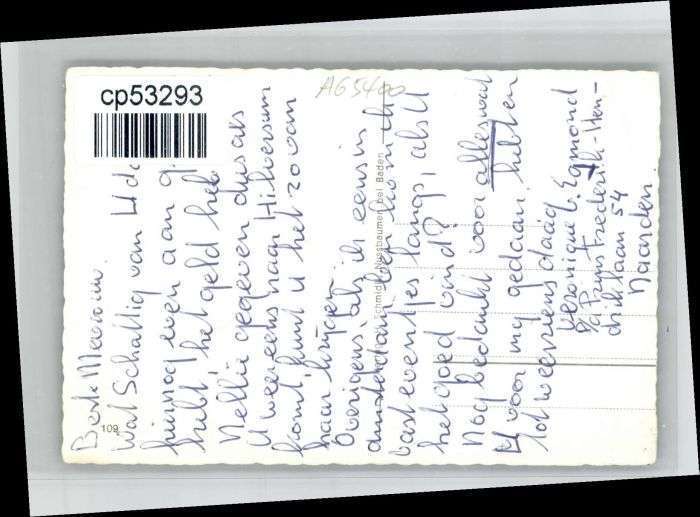 cp53293
AG5400
Beste Mevrouw.
Wat Schattig van U
hiernog even aan
hebt het geld heb
Nellie gegeven dus als
U weer eens naar Hilversum
komt kunt U het zo van
haar krijgen.
Overigens als ik eens in
kom ik
vast eventjes langs, als U
het goed vind?
Nog bedankt voor alles wat
U voor mij gedaan hebt en
tot weerziens daag
Veronique v. Egmond
p/a Prins Frederik-Hen-
driklaan 54
Naarden.
109
bei Baden